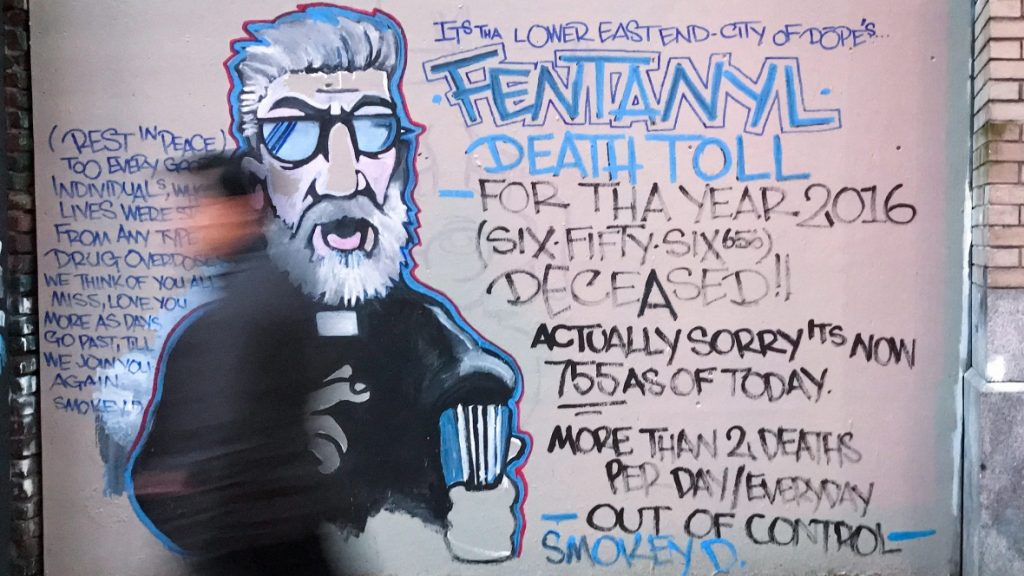 (REST IN PEACE)
TOO EVERY
INDIVIDUALS,
LIVES WERE
FROM ANY TYPE
DRUG OVERDOSE
WE THINK OF YOU ALL
MISS, LOVE YOU
MORE AS DAYS
GO PAST, TILL
WE JOIN YOU
AGAIN.
SMOKEY D.
ITS THA LOWER EAST END-CITY OF DOPE'S...
·FENTANYL·
DEATH TOLL
-FOR THA YEAR 2016
(SIX·FIFTY·SIX 656)
DECEASED!!
ACTUALLY SORRY IT'S NOW
755 AS OF TODAY.
MORE THAN 2 DEATHS
PER DAY//EVERYDAY
-OUT OF CONTROL-
SMOKEY D.